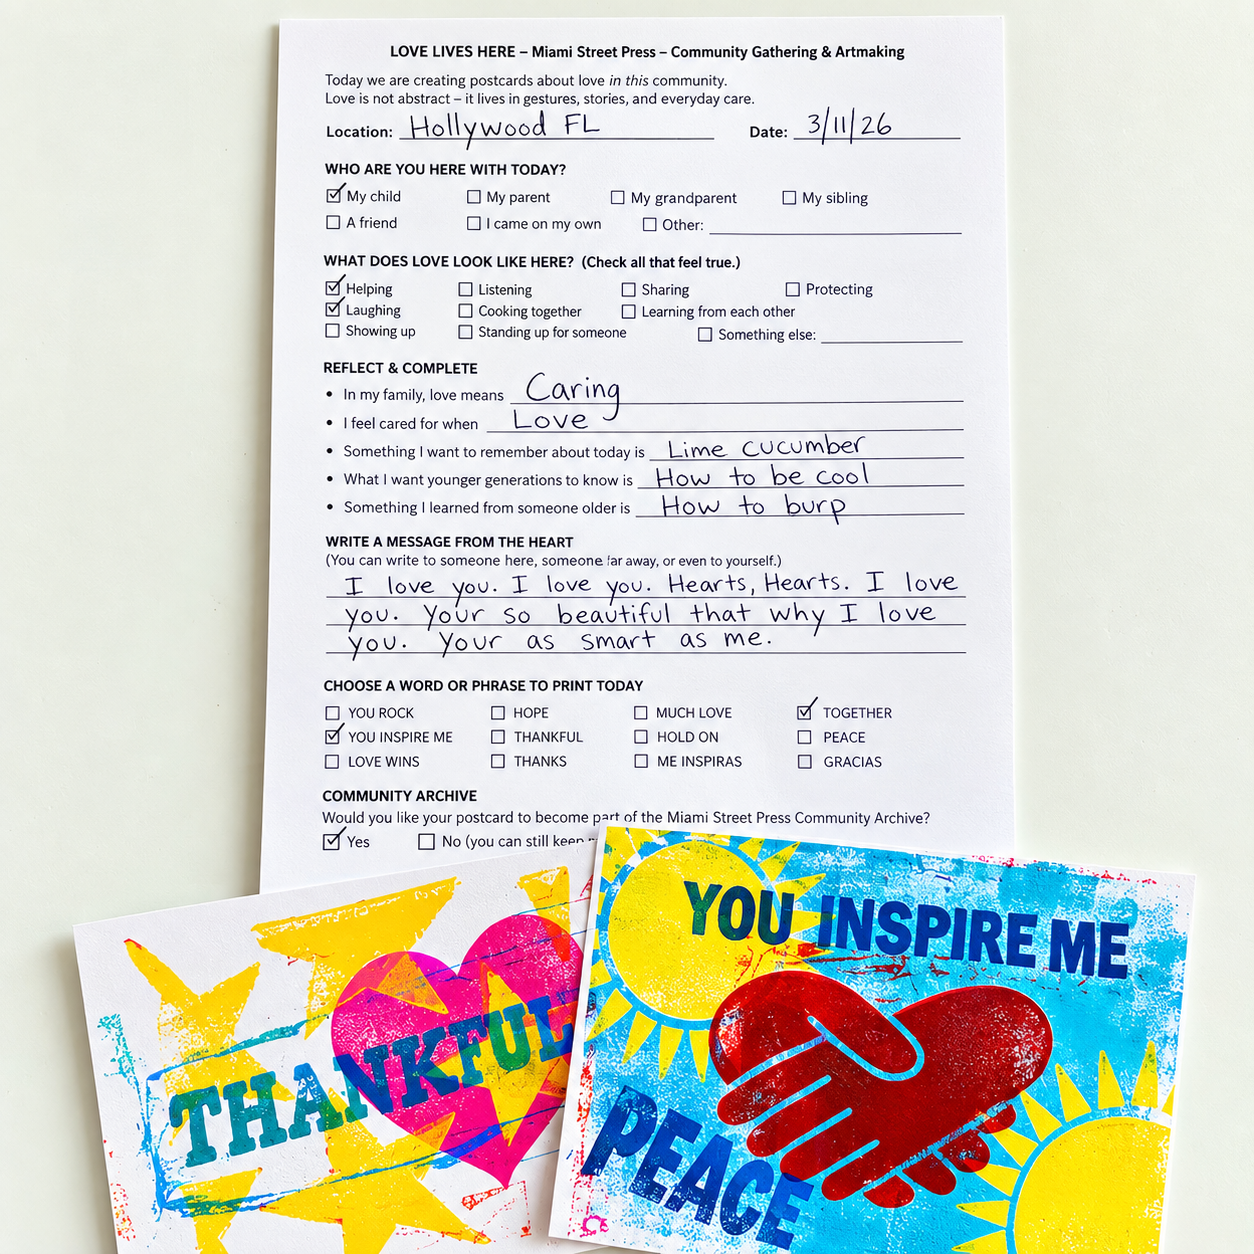 LOVE LIVES HERE – Miami Street Press – Community Gathering & Artmaking
Today we are creating postcards about love in this community.
Love is not abstract – it lives in gestures, stories, and everyday care.
Location: Hollywood FL Date: 3/11/26
WHO ARE YOU HERE WITH TODAY?
My child My parent My grandparent My sibling
A friend I came on my own Other:
WHAT DOES LOVE LOOK LIKE HERE? (Check all that feel true.)
Helping Listening Sharing Protecting
Laughing Cooking together Learning from each other
Showing up Standing up for someone Something else:
REFLECT & COMPLETE
• In my family, love means Caring
• I feel cared for when Love
• Something I want to remember about today is Lime cucumber
• What I want younger generations to know is How to be cool
• Something I learned from someone older is How to burp
WRITE A MESSAGE FROM THE HEART
(You can write to someone here, someone far away, or even to yourself.)
I love you. I love you. Hearts, Hearts. I love
you. Your so beautiful that why I love
you. Your as smart as me.
CHOOSE A WORD OR PHRASE TO PRINT TODAY
YOU ROCK HOPE MUCH LOVE TOGETHER
YOU INSPIRE ME THANKFUL HOLD ON PEACE
LOVE WINS THANKS ME INSPIRAS GRACIAS
COMMUNITY ARCHIVE
Would you like your postcard to become part of the Miami Street Press Community Archive?
Yes No (you can still keep
THANKFUL
YOU INSPIRE ME
PEACE